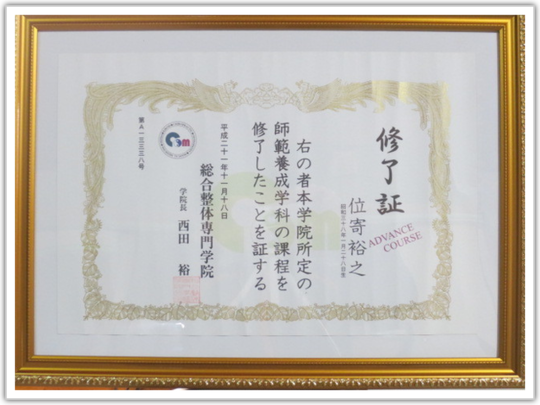 修了証
ADVANCE
COURSE
位寄裕之
昭和三十八年一月二十八日生
右の者本学院所定の
師範養成学科の課程を
修了したことを証する
平成二十一年十一月十八日
総合整体専門学院
学院長 西田 裕